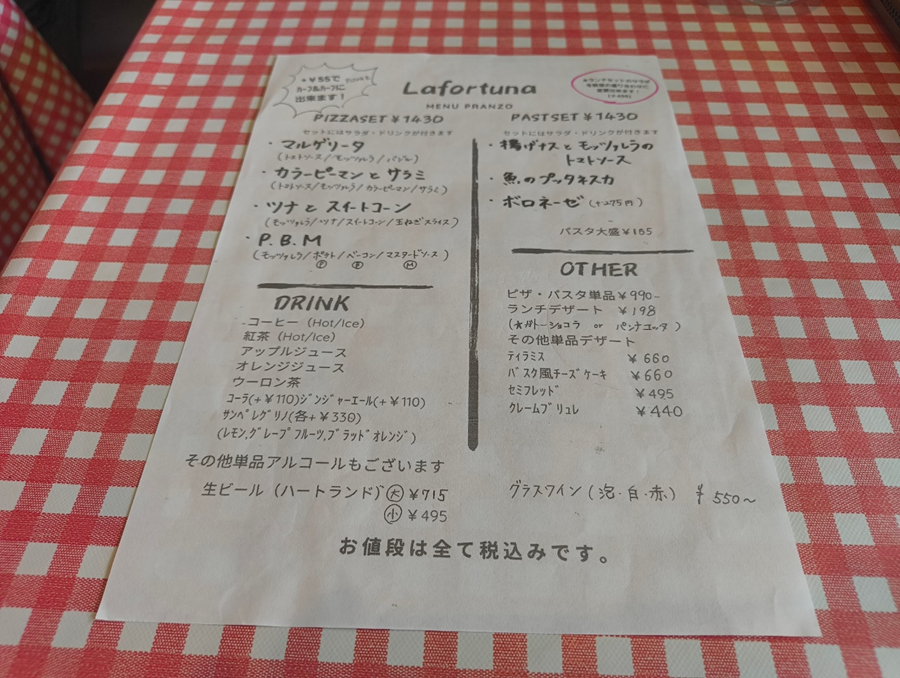 +¥55で
ハーフ&ハーフに
出来ます!
Lafortuna
MENU PRANZO
※ランチセットのサラダを
PIZZASET ¥1430
セットにはサラダ・ドリンクが付きます
・マルゲリータ
(トマトソース/モッツァレラ/バジル)
・カラーピーマンとサラミ
(トマトソース/モッツァレラ/カラーピーマン/サラミ)
・ツナとスイートコーン
(モッツァレラ/ツナ/スイートコーン/玉ねぎスライス)
・P.B.M
(モッツァレラ/ポテト/ベーコン/マスタードソース)
Ⓟ Ⓑ Ⓜ
DRINK
コーヒー (Hot/Ice)
紅茶 (Hot/Ice)
アップルジュース
オレンジジュース
ウーロン茶
コーラ(+¥110)ジンジャーエール(+¥110)
サンペレグリノ(各+¥330)
(レモン,グレープフルーツ,ブラッドオレンジ)
PASTSET ¥1430
セットにはサラダ・ドリンクが付きます
・揚げナスとモッツァレラの
トマトソース
・魚のプッタネスカ
・ボロネーゼ (+275円)
パスタ大盛¥165
OTHER
ピザ・パスタ単品¥990-
ランチデザート ¥198
(★ガトーショコラ or パンナコッタ)
その他単品デザート
ティラミス ¥660
バスク風チーズケーキ ¥660
セミフレッド ¥495
クレームブリュレ ¥440
その他単品アルコールもございます
生ビール (ハートランド) 大 ¥715
小 ¥495
グラスワイン (泡・白・赤) ¥550〜
お値段は全て税込みです。